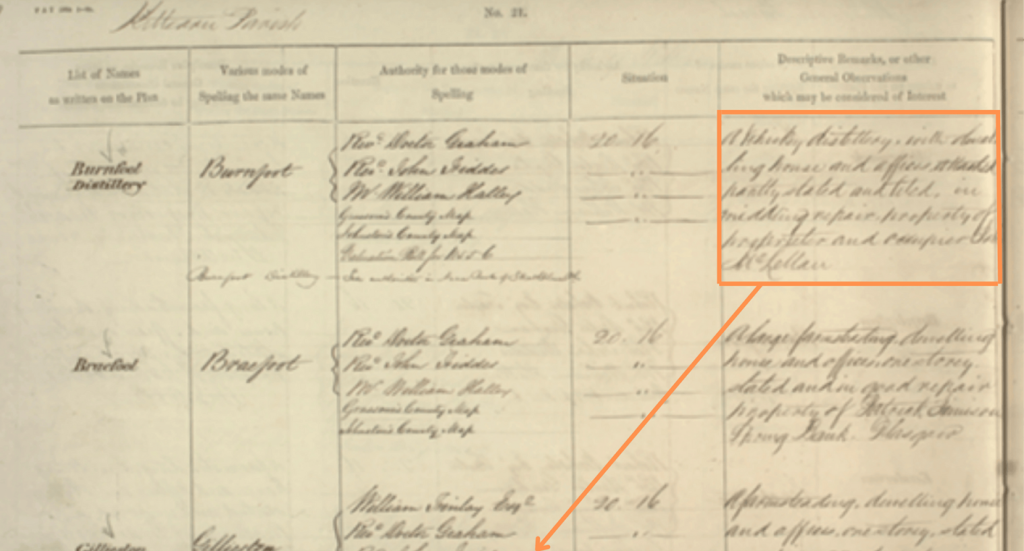 Killearn Parish
No. 21.
List of Names as written on the Plan
Various modes of Spelling the same Names
Authority for those modes of Spelling
Situation
Descriptive Remarks, or other General Observations which may be considered of Interest
Burnfoot Distillery
Burnfoot
Revd. Doctor Graham
Revd. John
Mr. William Halley
County Map
Johnston's County Map
Valuation Roll for 1855-6
Burnfoot Distillery
20-16
A Whisky distillery, with dwel-
ling house and offices attached
partly slated and tiled, in
middling repair, property of
proprietor and occupier
McLellan
Braefoot
Braefoot
Revd. Doctor Graham
Revd. John
Mr William Halley
County Map
Johnston's County Map
20-16
A large farmsteading, dwelling
house and offices, one storey
slated and in good repair
property of Patrick
Bank. Glasgow
Gillieston
William Finlay Esqr.
Revd. Doctor Graham
20-16
A farmsteading, dwelling house
and offices, one storey, slated